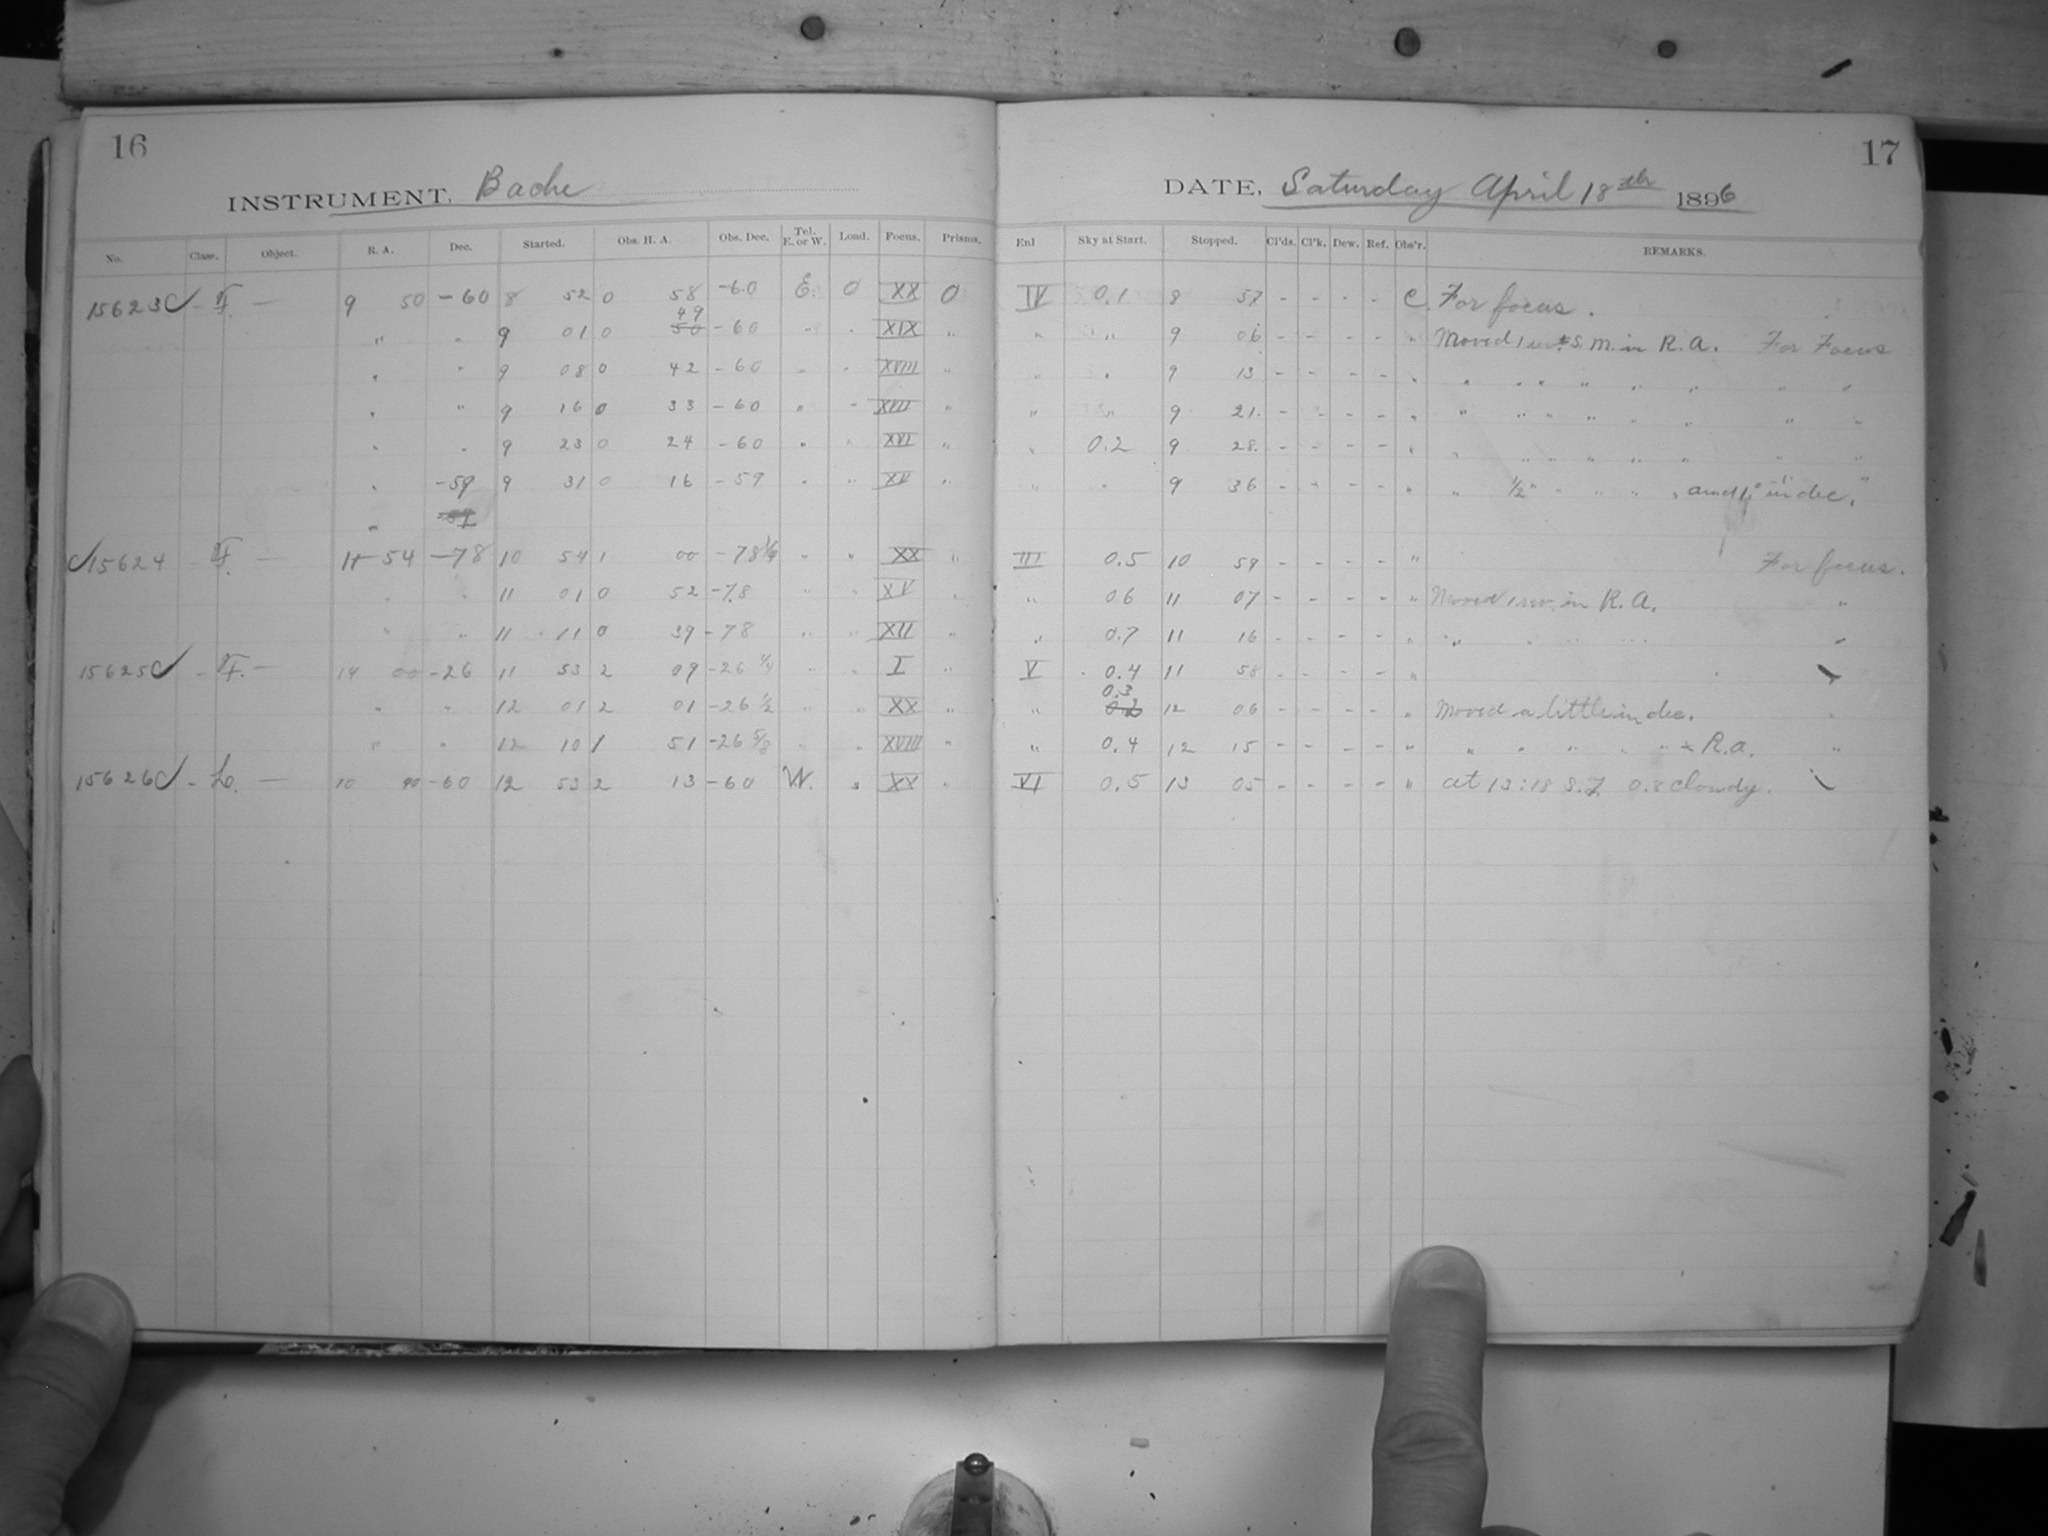 16
INSTRUMENT, Bache
No. Class. Object. R. A. Dec. Started. Obs. H. A. Obs. Dec. Tel. E. or W. Load. Focus. Prisms.
15623 F. — 9 50 -60 8 52 0 58 -60 E. 0 XX 0
49
" " 9 01 0 50 -60 " " XIX "
" " 9 08 0 42 -60 " " XVIII "
" " 9 16 0 33 -60 " " XVII "
" " 9 23 0 24 -60 " " XVI "
" -59 9 31 0 16 -59 " " XV "
"
15624 F. — 11 54 -78 10 54 1 00 -78 1/4 " " XX "
" " 11 01 0 52 -78 " " XV "
" " 11 11 0 39 -78 " " XII "
15625 F. — 14 00 -26 11 53 2 09 -26 1/4 " " I "
" " 12 01 2 01 -26 1/2 " " XX "
" " 12 10 1 51 -26 5/8 " " XVIII "
15626 L. — 10 40 -60 12 53 2 13 -60 W. " XX "
17
DATE, Saturday April 18th 1896
Enl Sky at Start. Stopped. Cl'ds. Cl'k. Dew. Ref. Obs'r. REMARKS.
IV 0.1 8 57 - - - - C. For focus.
" " 9 06 - - - - " Moved 1 S. M. in R. A. For Focus
" " 9 13 - - - - " " " " " " " " "
" " 9 21 - - - - " " " " " " " " "
" 0.2 9 28 - - - - " " " " " " " " "
" " 9 36 - - - - " " 1/2 " " " " " and 1° in dec. "
III 0.5 10 59 - - - - " For focus.
" 0.6 11 07 - - - - " Moved 1 rev. in R. A. "
" 0.7 11 16 - - - - " " " " " "
V 0.4 11 58 - - - - "
0.3
" 12 06 - - - - " Moved a little in dec. "
" 0.4 12 15 - - - - " " " " " " & R.a. "
VI 0.5 13 05 - - - - " at 13:18 S.T. 0.8 cloudy.